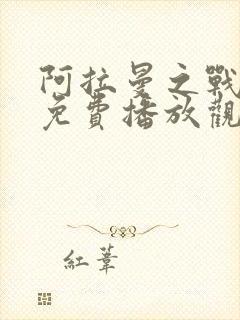 阿拉曼之戰
免費播放觀
紅葦